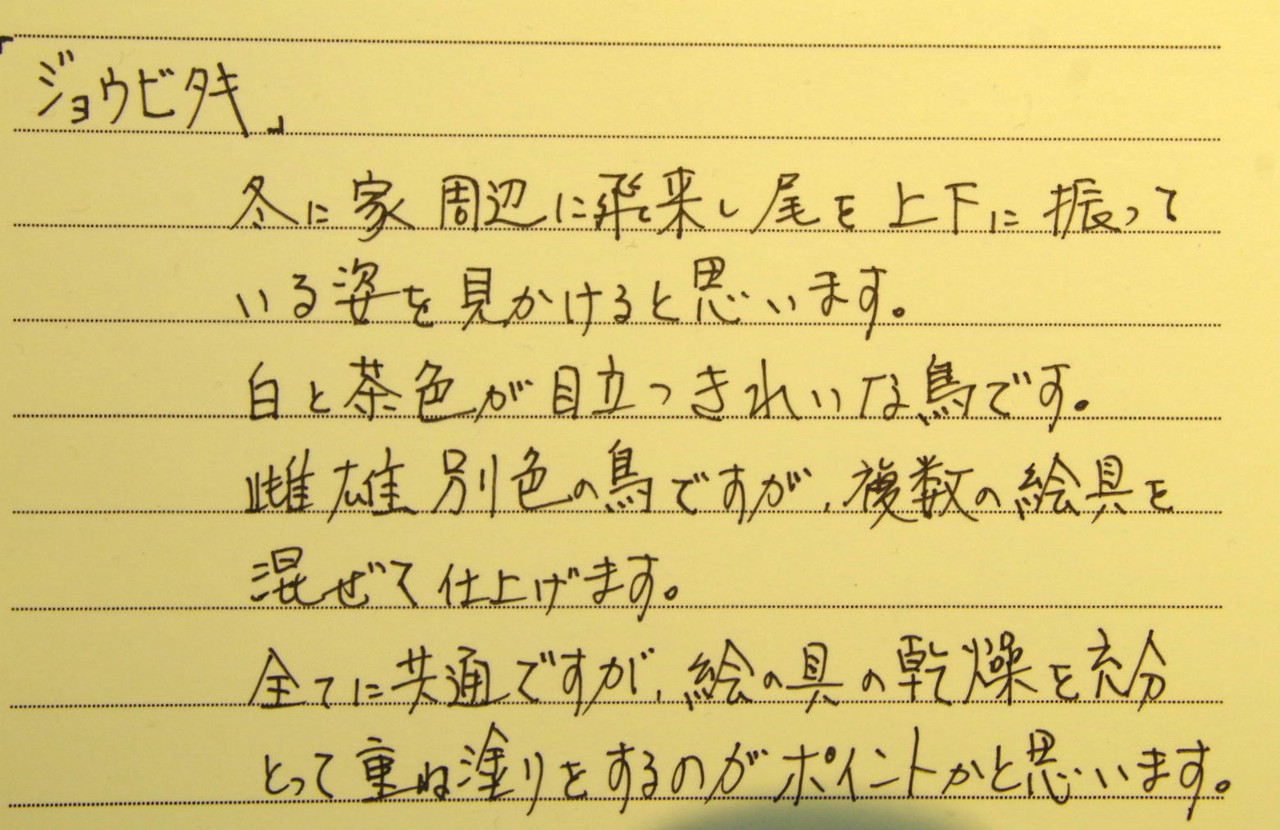 「ジョウビタキ」
冬に家周辺に飛来し尾を上下に振って
いる姿を見かけると思います。
白と茶色が目立つきれいな鳥です。
雌雄別色の鳥ですが、複数の絵具を
混ぜて仕上げます。
全てに共通ですが、絵の具の乾燥を充分
とって重ね塗りをするのがポイントかと思います。